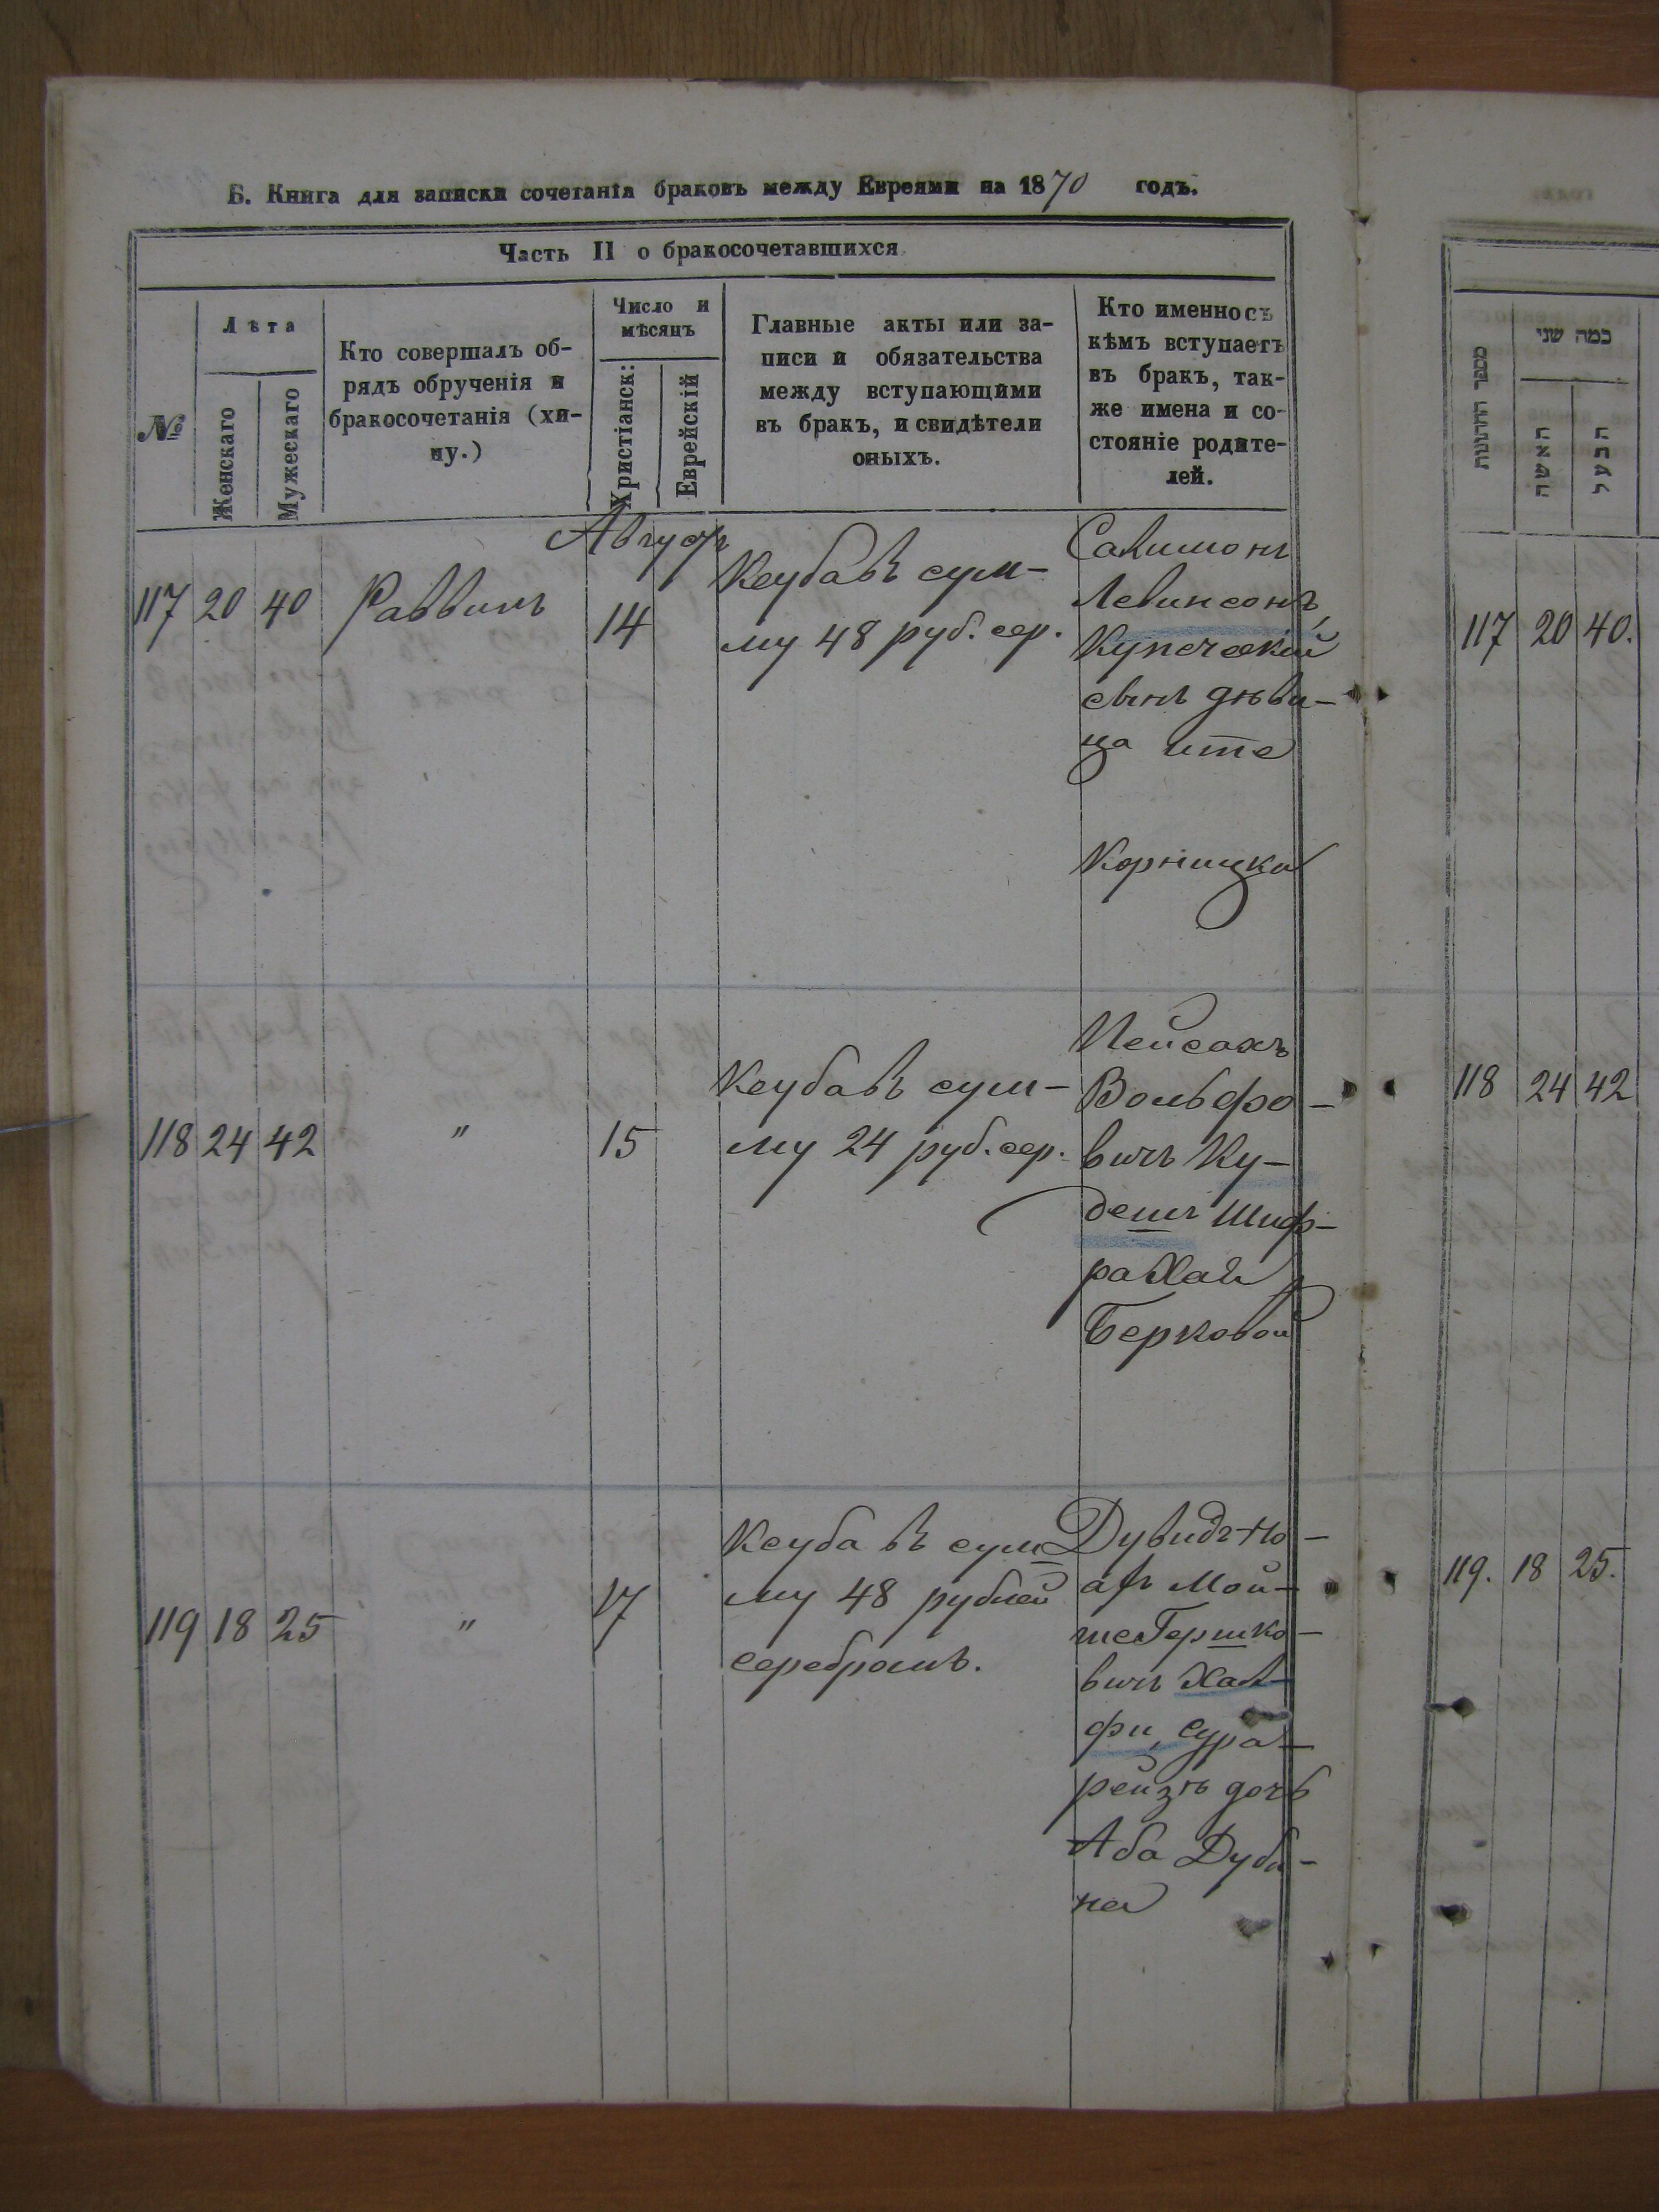 Б. Книга для записки сочетанія браковъ между Евреями на 1870 годъ.
Часть II о бракосочетавшихся
№
Лѣта
Женскаго
Мужескаго
Кто совершалъ об-
рядъ обрученія и
бракосочетанія (хи-
пу.)
Число и
мѣсяцъ
Христіанск:
Еврейскій
Главные акты или за-
писи и обязательства
между вступающими
въ бракъ, и свидѣтели
оныхъ.
Кто именно съ
кѣмъ вступаетъ
въ бракъ, так-
же имена и со-
стояніе родите-
лей.
Август
117 20 40 Раввинъ 14
Кеуба въ сум-
му 48 руб. сер.
Левинсонъ,
Купеческій
сынъ дѣви-
ца ите
Корницка
118 24 42 " 15
Кеуба въ сум-
му 24 руб. сер.
Пейсахъ
Вольфо-
вичъ Ку-
дешъ Шиф-
ра Хая
Берковой
119 18 25 " 17
Кеуба въ сум-
му 48 рублей
серебромъ.
Дувидъ Но-
Мой-
ше Гершко-
вичъ
фи, Сура-
рейзъ дочь
Аба Дуби-
на
מספר החתונות
כמה שני
האשה
הבעל
117 20 40.
118 24 42
119. 18 25.